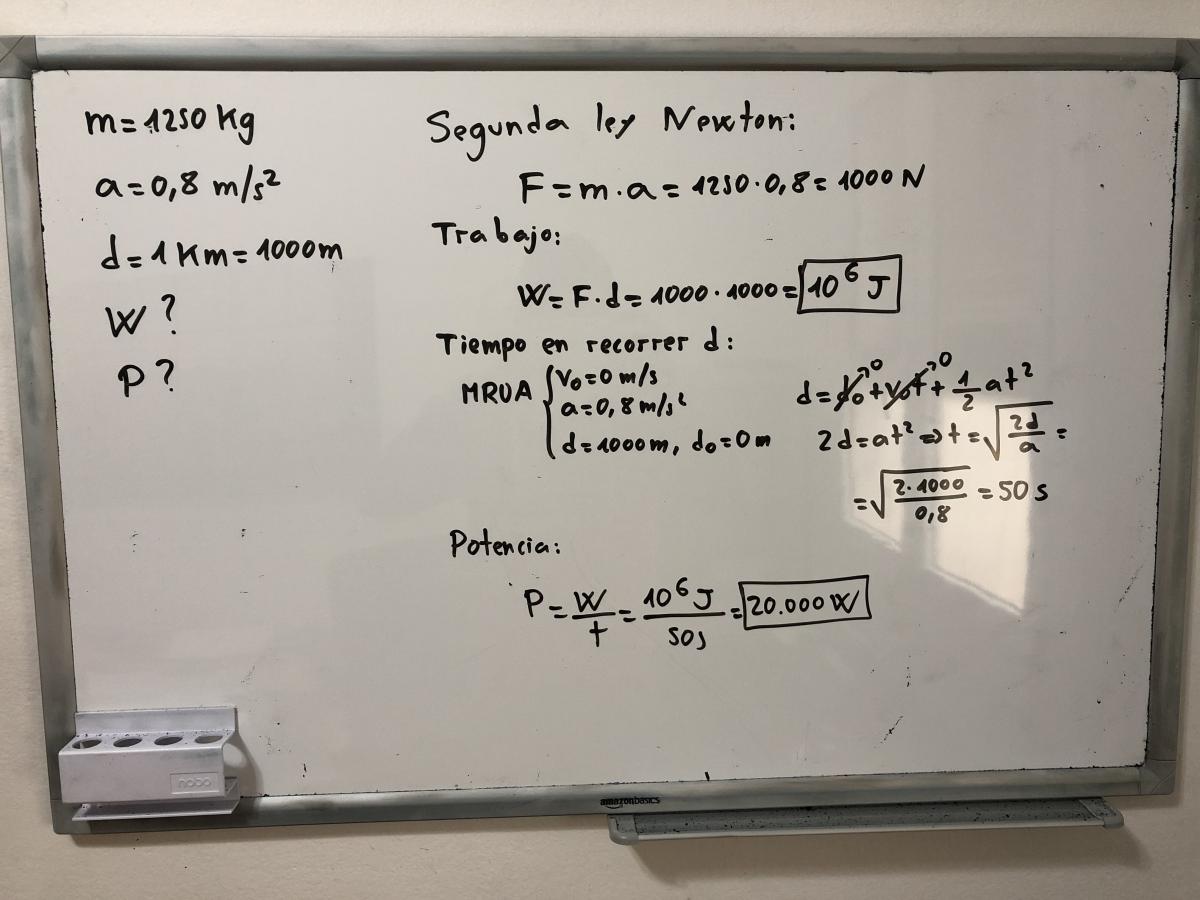 m=1250 Kg
a=0,8 m/s²
d=1 Km=1000m
W?
P?
Segunda ley Newton:
F=m·a=1250·0,8=1000 N
Trabajo:
W=F·d=1000·1000=10⁶ J
Tiempo en recorrer d:
MRUA { v₀=0 m/s
a=0,8 m/s²
d=1000m, d₀=0m
d=d₀→0+v₀t→0+1/2 at²
2d=at²⇒t=√(2d/a)=
=√(2·1000/0,8)=50 s
Potencia:
P=W/t=10⁶J/50s=20.000 W
nobo
amazonbasics